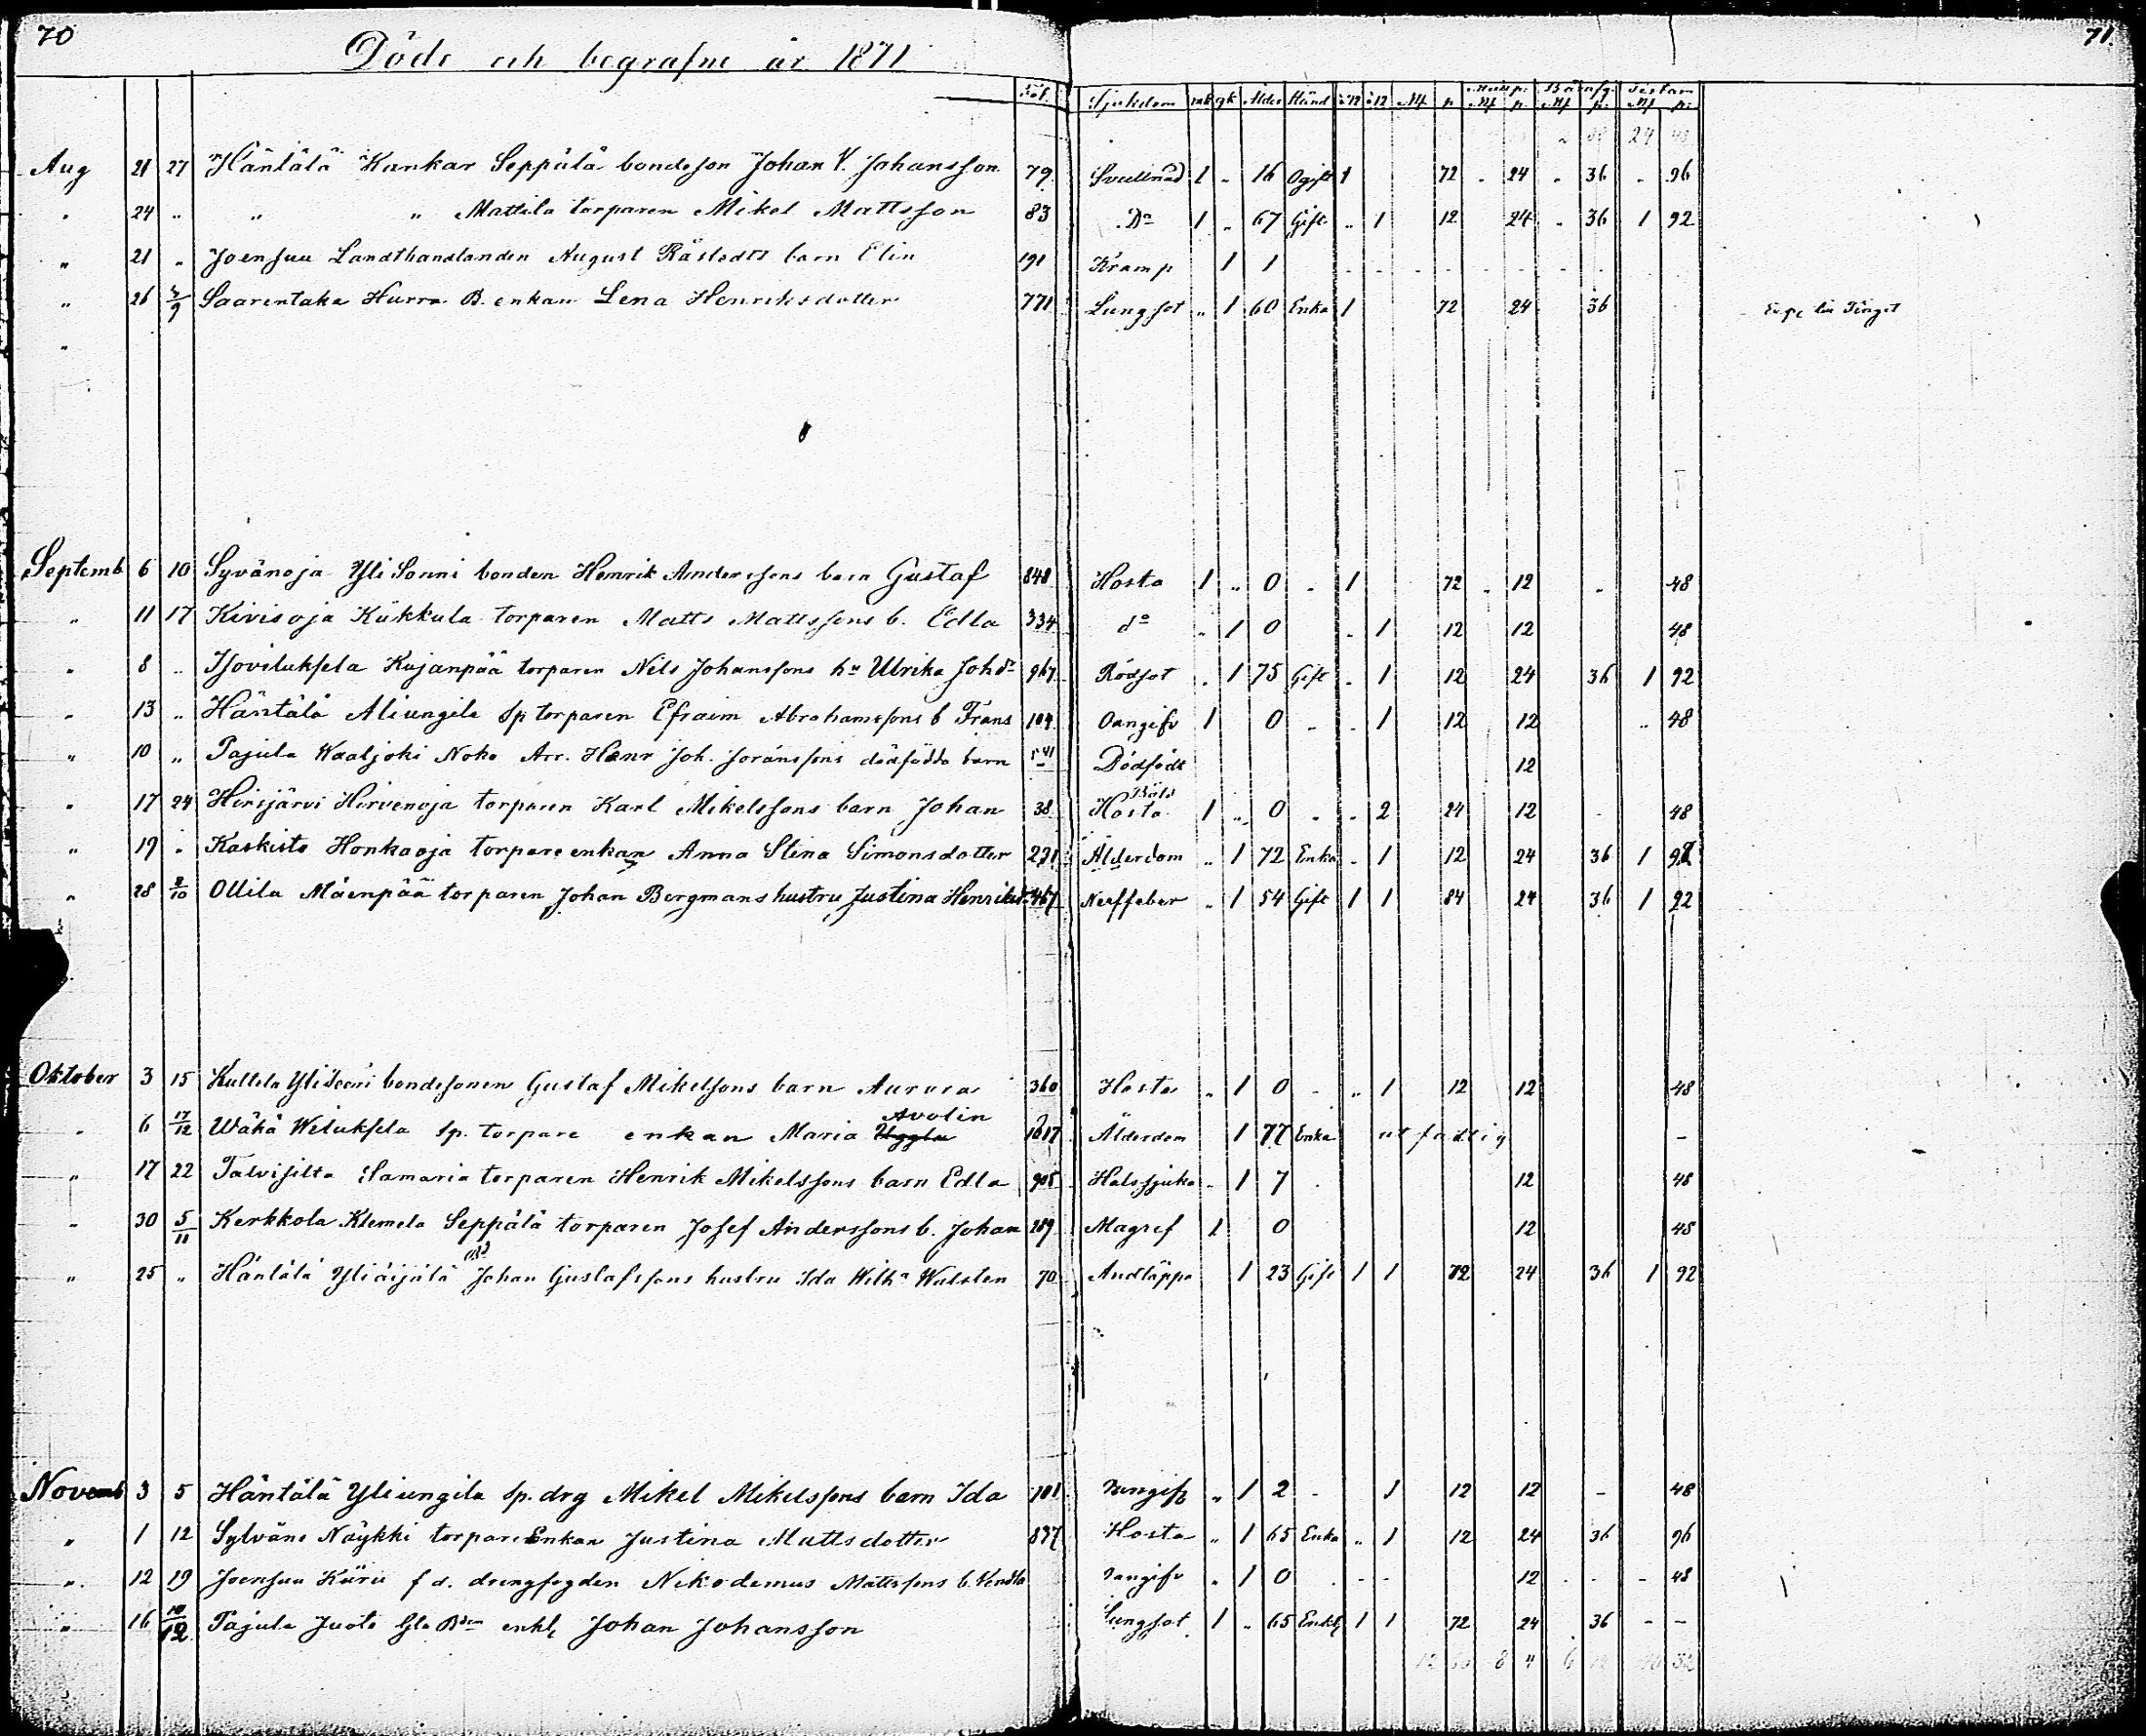 70
71.
Döde och begrafne år 1871
Fol. Sjukdom mk qk Ålder Stånd Mf p Mf p. Mf p. Testam Mf p.
24 48
Aug 21 27 Häntälä Kankar Seppälä bondeson Johan V. Johansson 79 Svullnad 1 " 16 Ogift 1 72 " 24 " 36 " 96
" 24 " " " Mattila torparen Mikel Mattsson 83 Do 1 " 67 Gift " 1 12 24 " 36 1 92
" 21 " Joensuu Landthandlanden August Råstedts barn Elin 191 Kramp 1 1
" 26 3/9 Saarentaka Hurra B. enkan Lena Henriksdotter 771 Lungsot " 1 60 Enka 1 72 24 36
"
Septemb 6 10 Syvänoja Yli Sonni bonden Henrik Anderssons barn Gustaf 848 Hosta 1 " 0 " 1 72 " 12 " 48
" 11 17 Kivisoja Kukkula torparen Matts Mattssons b. Edla 334 do " 1 0 " 1 12 12 48
" 8 " Isoviluksela Kujanpää torparen Nils Johanssons hu Ulrika Johdr 967 Rödsot " 1 75 Gift " 1 12 24 36 1 92
" 13 " Häntälä Aliungila Sp torparen Efraim Abrahamssons b Frans 104 Oangifv 1 0 " " 1 12 12 " 48
" 10 " Pajula Waaljoki Noko Arr. Henr Joh. Joranssons dödfödda barn 541 Dödfödt 12
" 17 24 Hirsjärvi Hirvenoja torparen Karl Mikelssons barn Johan 38 Hosta 1 " 0 " " 2 24 12 48
" 19 " Kaskisto Honkaoja torpareenkan Anna Stina Simonsdotter 231 Ålderdom " 1 72 Enka " 1 12 24 36 1 92
" 28 2/10 Ollila Mäenpää torparen Johan Bergmans hustru Justina Henriksd 467 Nerffeber " 1 54 Gift 1 1 84 24 36 1 92
Oktober 3 15 Kultela bondesonen Gustaf Mikelsons barn Aurora 360 Hosta " 1 0 " " 1 12 12 48
Avolin
" 6 17/12 Wähä Wiluksela sp. torpare enkan Maria Uggla 1017 Ålderdom 1 77 Enka utfattig –
" 17 22 Talvisilta Samaria torparen Henrik Mikelssons barn Edla 905 Halssjuka " 1 7 12 48
" 30 5/11 Kerkkola Klemela Seppälä torparen Josef Anderssons b. Johan 289 Magref 1 0 12 48
" 25 " Häntälä Yliäijälä Johan Gustafssons hustru Ida Wilh:a Walsten 70 Andtäppa 1 23 Gift 1 1 72 24 36 1 92
Novemb 3 5 Häntälä Yliungila Sp. drg Mikel Mikelssons barn Ida 101 Oangifv " 1 2 – 1 12 12 – 48
" 1 12 Sylväne Näykki torpareEnkan Justina Mattsdotter 837 Hosta " 1 65 Enka " 1 12 24 36 96
" 12 19 Joensuu f d. drengfogden Nikodemus Mattssons b. Vendla Oangifv " 1 0 12 48
" 16 10/12 Pajula Juota Gla Bdn enkl Johan Johansson Lungsot 1 " 65 Enkl 1 1 72 24 36 – –